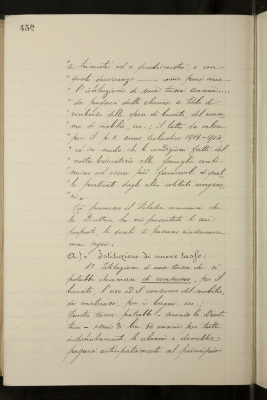 452
" e trimestri ed a quali
" quali decorrenze ........ come pure circa
" l'istituzione di una tassa annua ....
" da pagarsi dalle alunne a titolo di
" rimborso delle spese di bucato, del consu-
" mo di mobilio, ecc.; il tutto da valere
" per il p.v. anno scolastico 1913-1914
" ed in modo che le condizioni fatte dal
" nostro Educatorio alle famiglie conti-
" nuino ad essere più favorevoli di quel-
" le praticate dagli altri istituti congene-
" ri "
il Relatore comunica che
la Direttrice ha presentato le sue
proposte, le quali si possono riassumere
come segue:
a) - Istituzione di nuove tasse:
1° Istituzione di una tassa che si
potrebbe chiamare di consumo, per il
bucato, l'uso ed il consumo del mobilio,
dei materassi, per i bagni, ecc.;
Questa tassa potrebbe secondo la Diret-
trice - essere di lire 30 annue per tutte
indistintamente le alunne e dovrebbe
pagarsi anticipatamente al principio